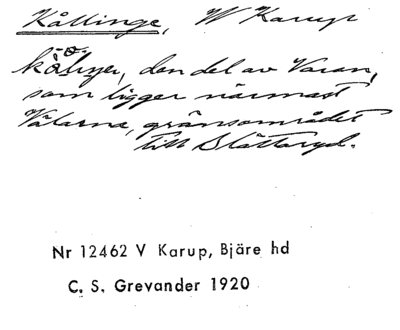 Kållinge, W Karup
den del av Varan,
som ligger närmast
Vålarna, gränsområdet
till Slättaryd.
Nr 12462 V Karup, Bjäre hd
C. S. Grevander 1920